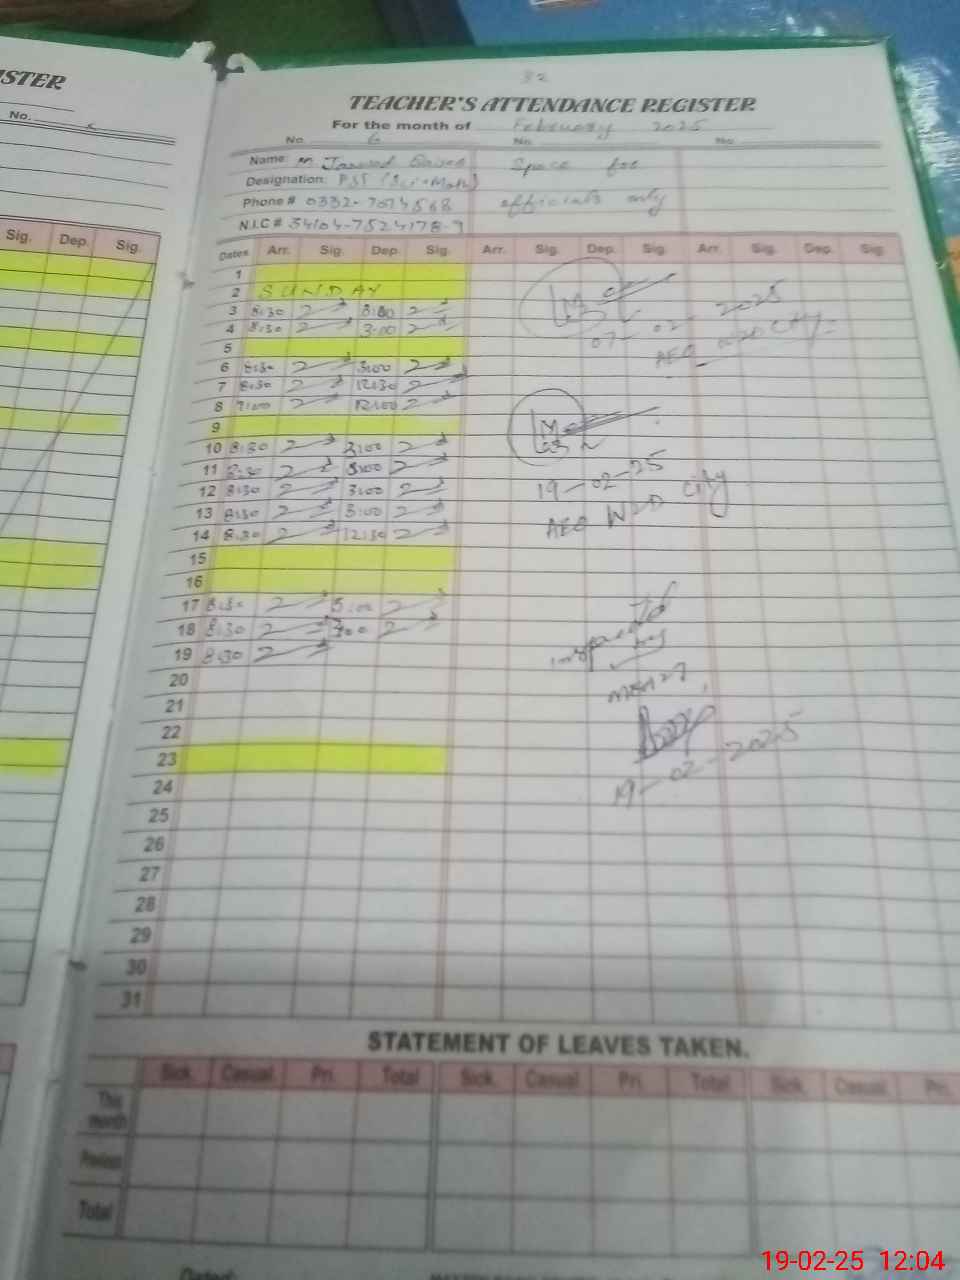 ISTER
No.
Sig. Dep. Sig.
32
TEACHER'S ATTENDANCE REGISTER
For the month of February 2025
No. 6 No. No.
Name: M Space for
Designation: PST (Sci-Math) officials only
Phone # 0332-7074568
N.I.C # 34104-7524178-9
Dates Arr. Sig. Dep Sig. Arr. Sig. Dep. Sig. Arr. Sig. Dep. Sig.
1
2 SUNDAY
3 8:30 3:00
4 8:30 3:00
5
6 8:30 3:00
7 8:30 12:30
8 12:00
9
10 8:30 3:00
11 8:30 3:00
12 8:30 3:00
13 8:30 3:00
14 8:30 12:30
15
16
17 8:30 3:00
18 8:30 3:00
19 8:30
20
21
22
23
24
25
26
27
28
29
30
31
07-02-2025
AEO WZD City
19-02-25
AEO WZD City
inspected
by
19-02-2025
STATEMENT OF LEAVES TAKEN.
Sick. Casual. Pri. Total Sick. Casual. Pri. Total. Sick. Casual. Pri.
This
month
Previous
Total
Dated:
19-02-25 12:04